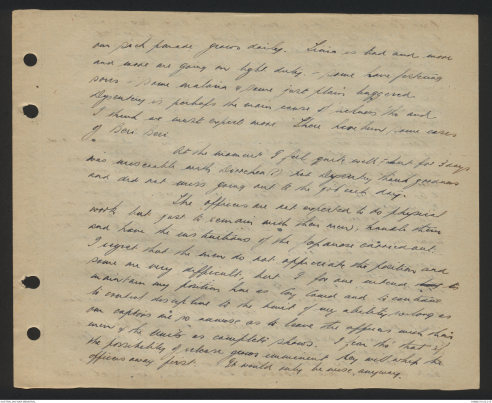 our sick parade grows daily. Tinea is bad and more
and more are going on light duty. - some have festering
sores - some malaria & some just plain buggered.
Dysentery is perhaps the main cause of sickness tho and
I think we must expect more. There have been some cases
of Beri Beri.
At the moment I feel quite well but for 3 days
was miserable with Diarrhoea, not Dysentry thank goodness
and did not miss going out to the job each day.
The officers are not expected to do physical
work but just to remain with their men, handle them
and have the instructions of the Japanese carried out.
I regret that the men do not appreciate the position and
some are very difficult, but I for one intend to
maintain my position here as long laid and to continue
to control discipline to the limit of my ability so long as
our captors are so as to leave the officers with their
men & the units as complete shows. I fear tho that if
the possibility of release grows imminent they will whip the
officers away first. It would only be wise, anyway.